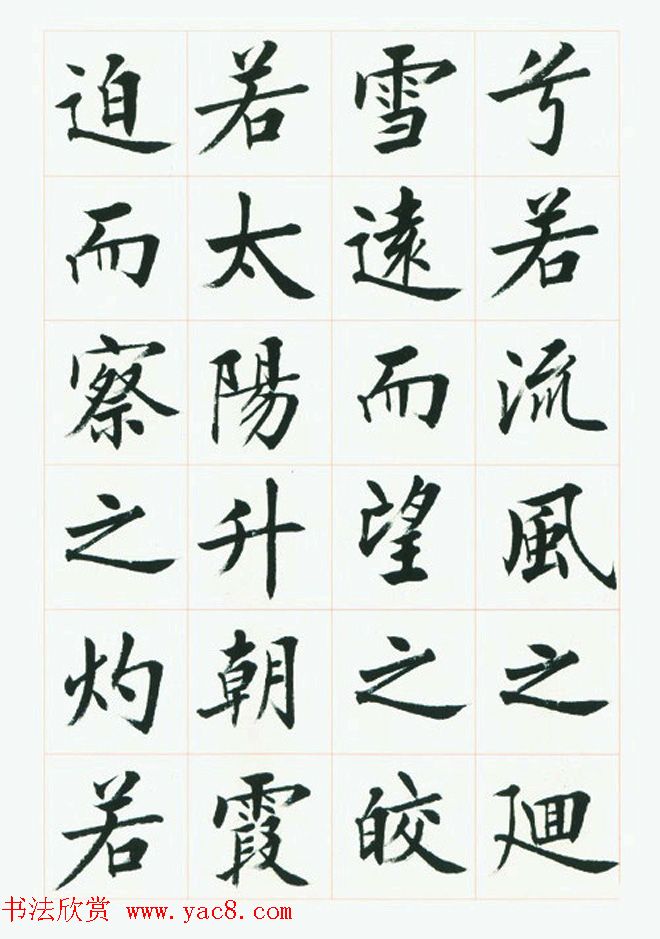 兮若流風之廻
雪遠而望之皎
若太陽升朝霞
迫而察之灼若
书法欣赏 www.yac8.com